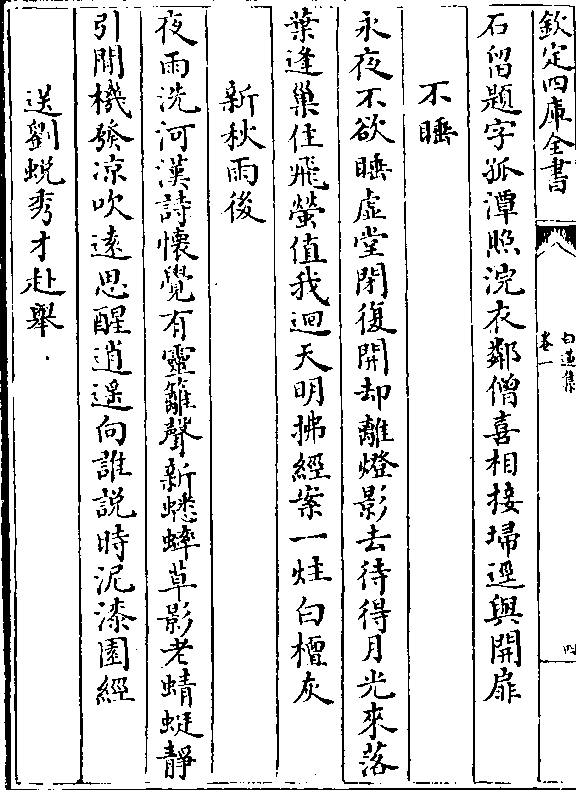 欽定四庫全書
白蓮集
卷一
四
石留題字孤潭照浣衣鄰僧喜相接埽逕與開扉
不睡
永夜不欲睡虛堂閉復開却離燈影去待得月光來落
葉逢巢住飛螢值我迴天明拂經案一炷白檀灰
新秋雨後
夜雨洗河漢詩懷覺有靈籬聲新蟋蟀草影老蜻蜓靜
引閒機發凉吹遠思醒逍遥向誰說時泥漆園經
送劉蜕秀才赴舉